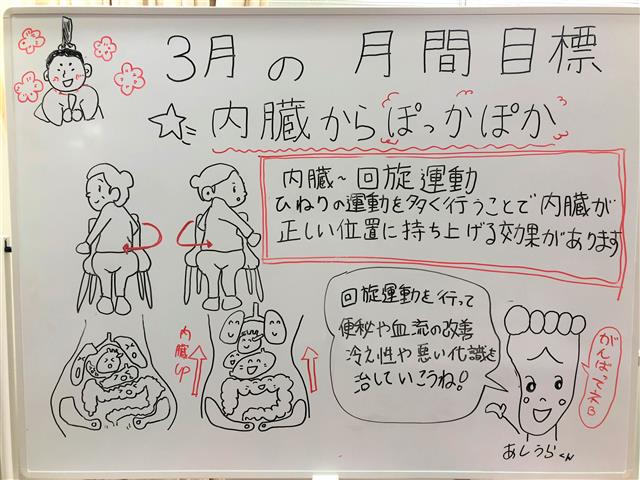 3月の 月間目標
☆内臓からぽっかぽか
内臓~回旋運動
ひねりの運動を多く行うことで内臓が
正しい位置に持ち上げる効果があります
回旋運動を行って
便秘や血流の改善
冷え性や悪い化識を
治していこうね!
内臓UP
がんばってネ
あしうらくん